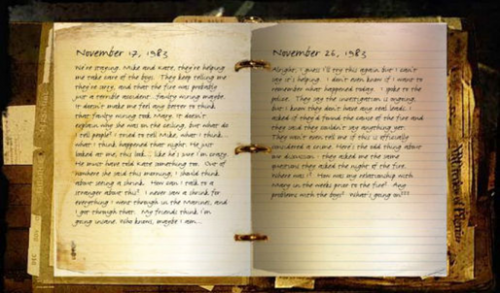 November 17, 1983
We're staying. Mike and Kate, they're helping
me take care of the boys. They keep telling me
they're sorry, and that the fire was probably
just a terrible accident... faulty wiring maybe.
It doesn't make me feel any better to think
that faulty wiring took Mary. It doesn't
explain why she was on the ceiling, but what do I
tell people? I tried to tell Mike, what I think...
what I think happened that night. He just
looked at me, this look... like he's sure I'm crazy.
He must have told Kate something too. One of
them she said this morning, I should think
about seeing a shrink. How can I talk to a
stranger about this? I never saw a shrink for
everything I went through in the Marines, and
I got through that. My friends think I'm
going insane. Who knows, maybe I am...
November 26, 1983
Alright, I guess I'll try this again but I can't
say it's helping. I don't even know if I want to
remember what happened today. I spoke to the
police. They say the investigation is ongoing,
but I know they don't have any real leads. I
asked if they'd found the cause of the fire and
they said they couldn't say anything yet.
They won't even tell me if this is officially
considered a crime. Here's the odd thing about
our discussion - they asked me the same
questions they asked the night of the fire.
Where was I? How was my relationship with
Mary in the weeks prior to the fire? Any
problems with the boys? What's going on???